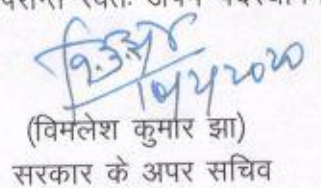 स्वतः
10/4/2020
(विमलेश कुमार झा)
सरकार के अपर सचिव